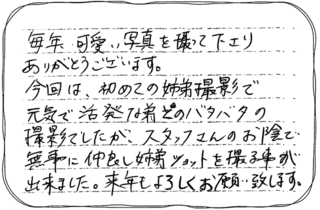 毎年 可愛い写真を撮って下さり
ありがとうございます。
今回は、初めての姉弟撮影で
元気で活発な弟とのバタバタの
撮影でしたが、スタッフさんのお陰で
無事に仲良し姉弟ショットを撮る事が
出来ました。来年もよろしくお願い致します。